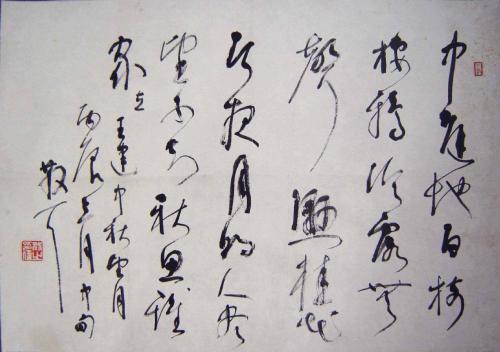 中庭地白樹
棲鴉冷露無
聲濕桂花
今夜月明人盡
望不知秋思誰
家在王建中秋望月
丙辰三月中旬
散耳